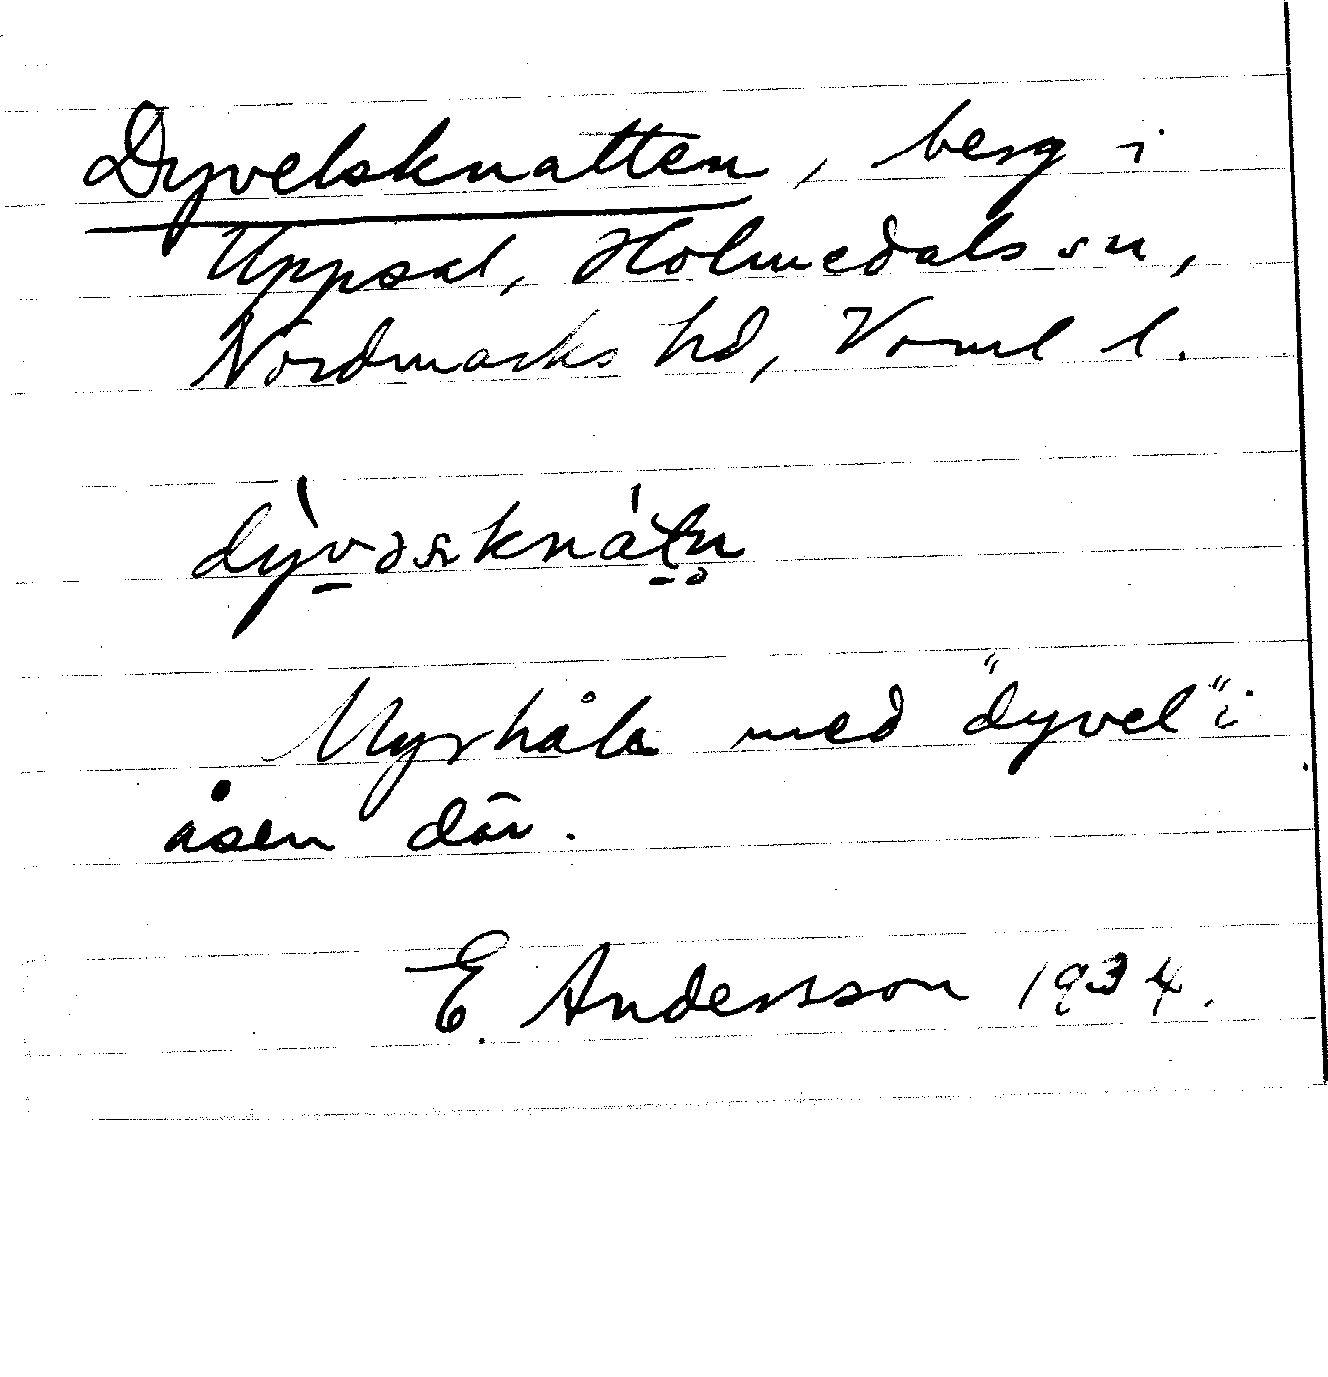 Dyvelsknatten, berg i
Uppsal, Holmedals sn,
Nordmarks hd, Verml l.
Myrhåla med "dyvel" i
åsen där.
E. Andersson 1934.